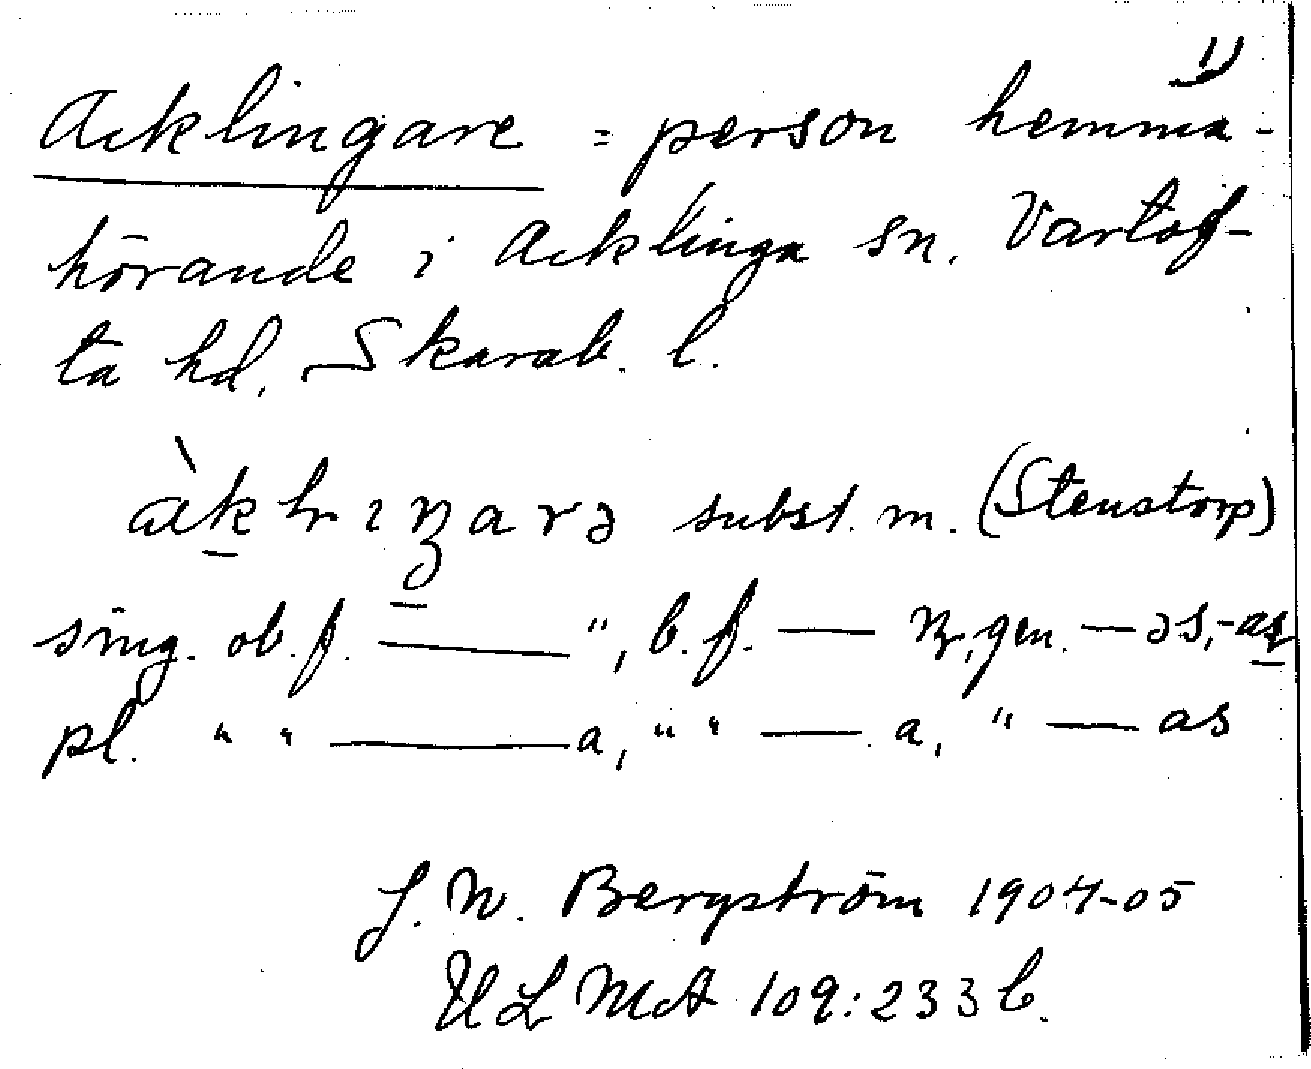 1)
Acklingare = person hemma-
hörande i Acklinga sn. Vartof-
ta hd. Skarab. l.
subst. m. (Stenstorp)
sing. ob. f. ——— ", b. f. — gen. — əs, -as
pl. " " ——— a, " " — a, " — as
J. N. Bergström 1904-05
ULMA 109:233 b.